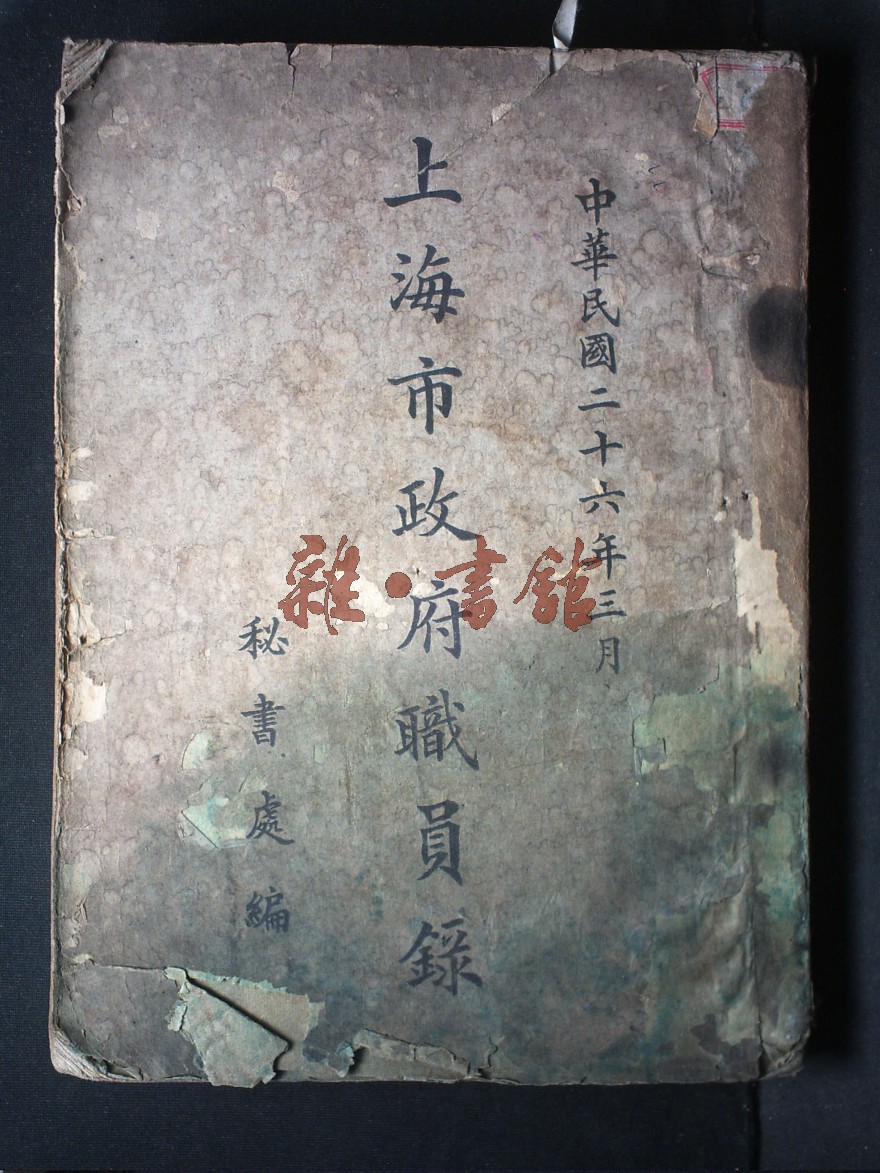 中華民國二十六年三月
上海市政府職員錄
秘書處編
雜·書館